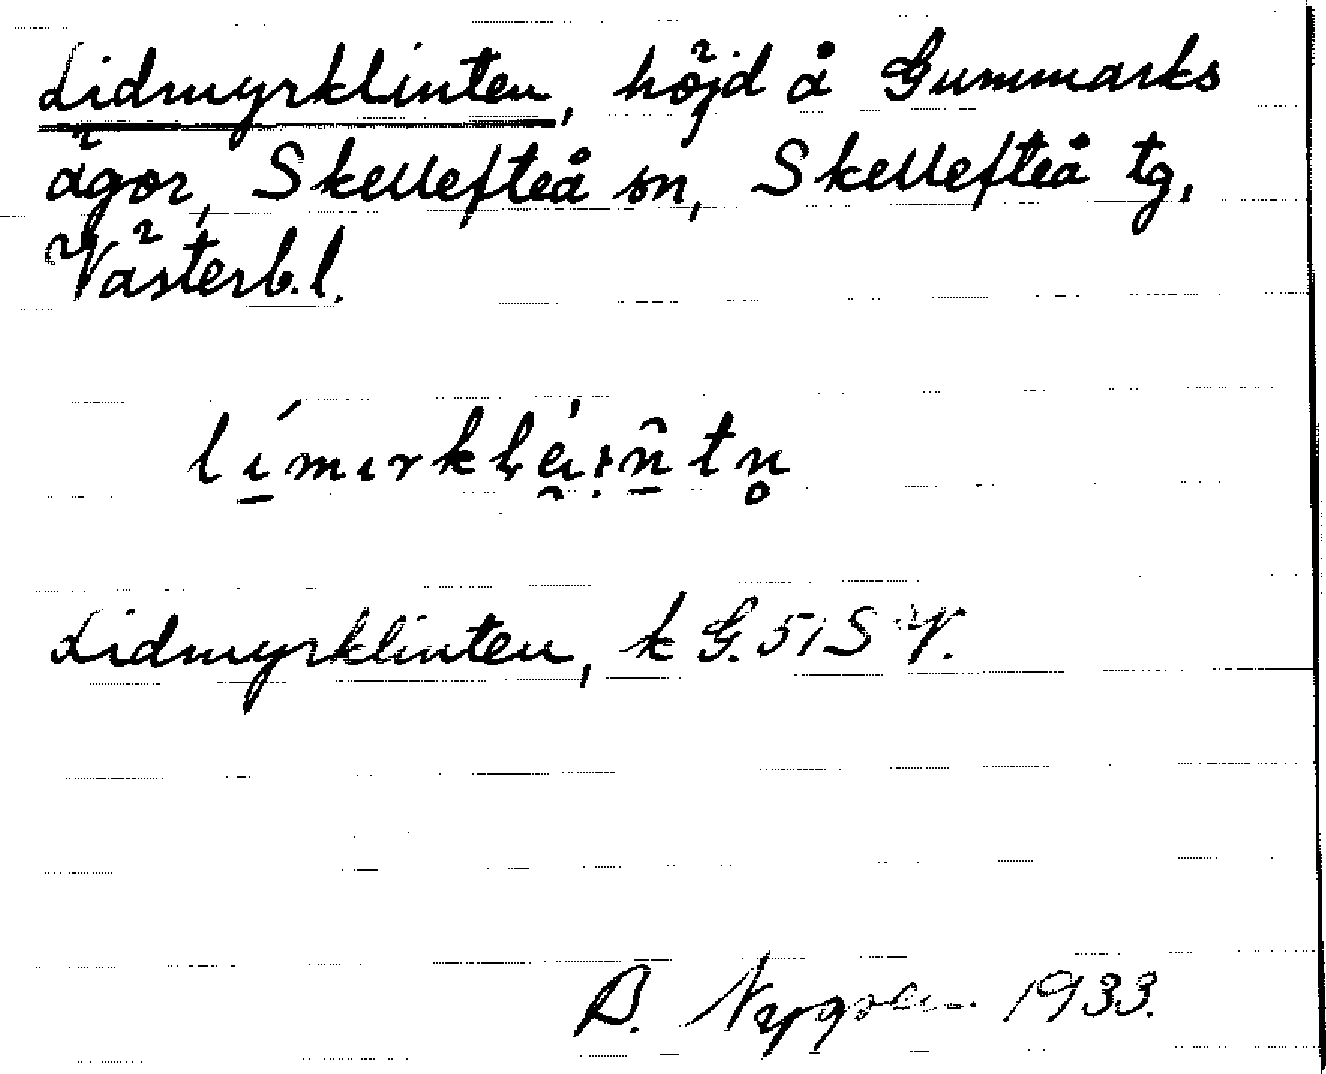 Lidmyrklinten, höjd å Gummarks
ägor, Skellefteå sn, Skellefteå tg,
Västerb.l.
Lidmyrklinten, k G. 51 S V.
Nygren 1933.